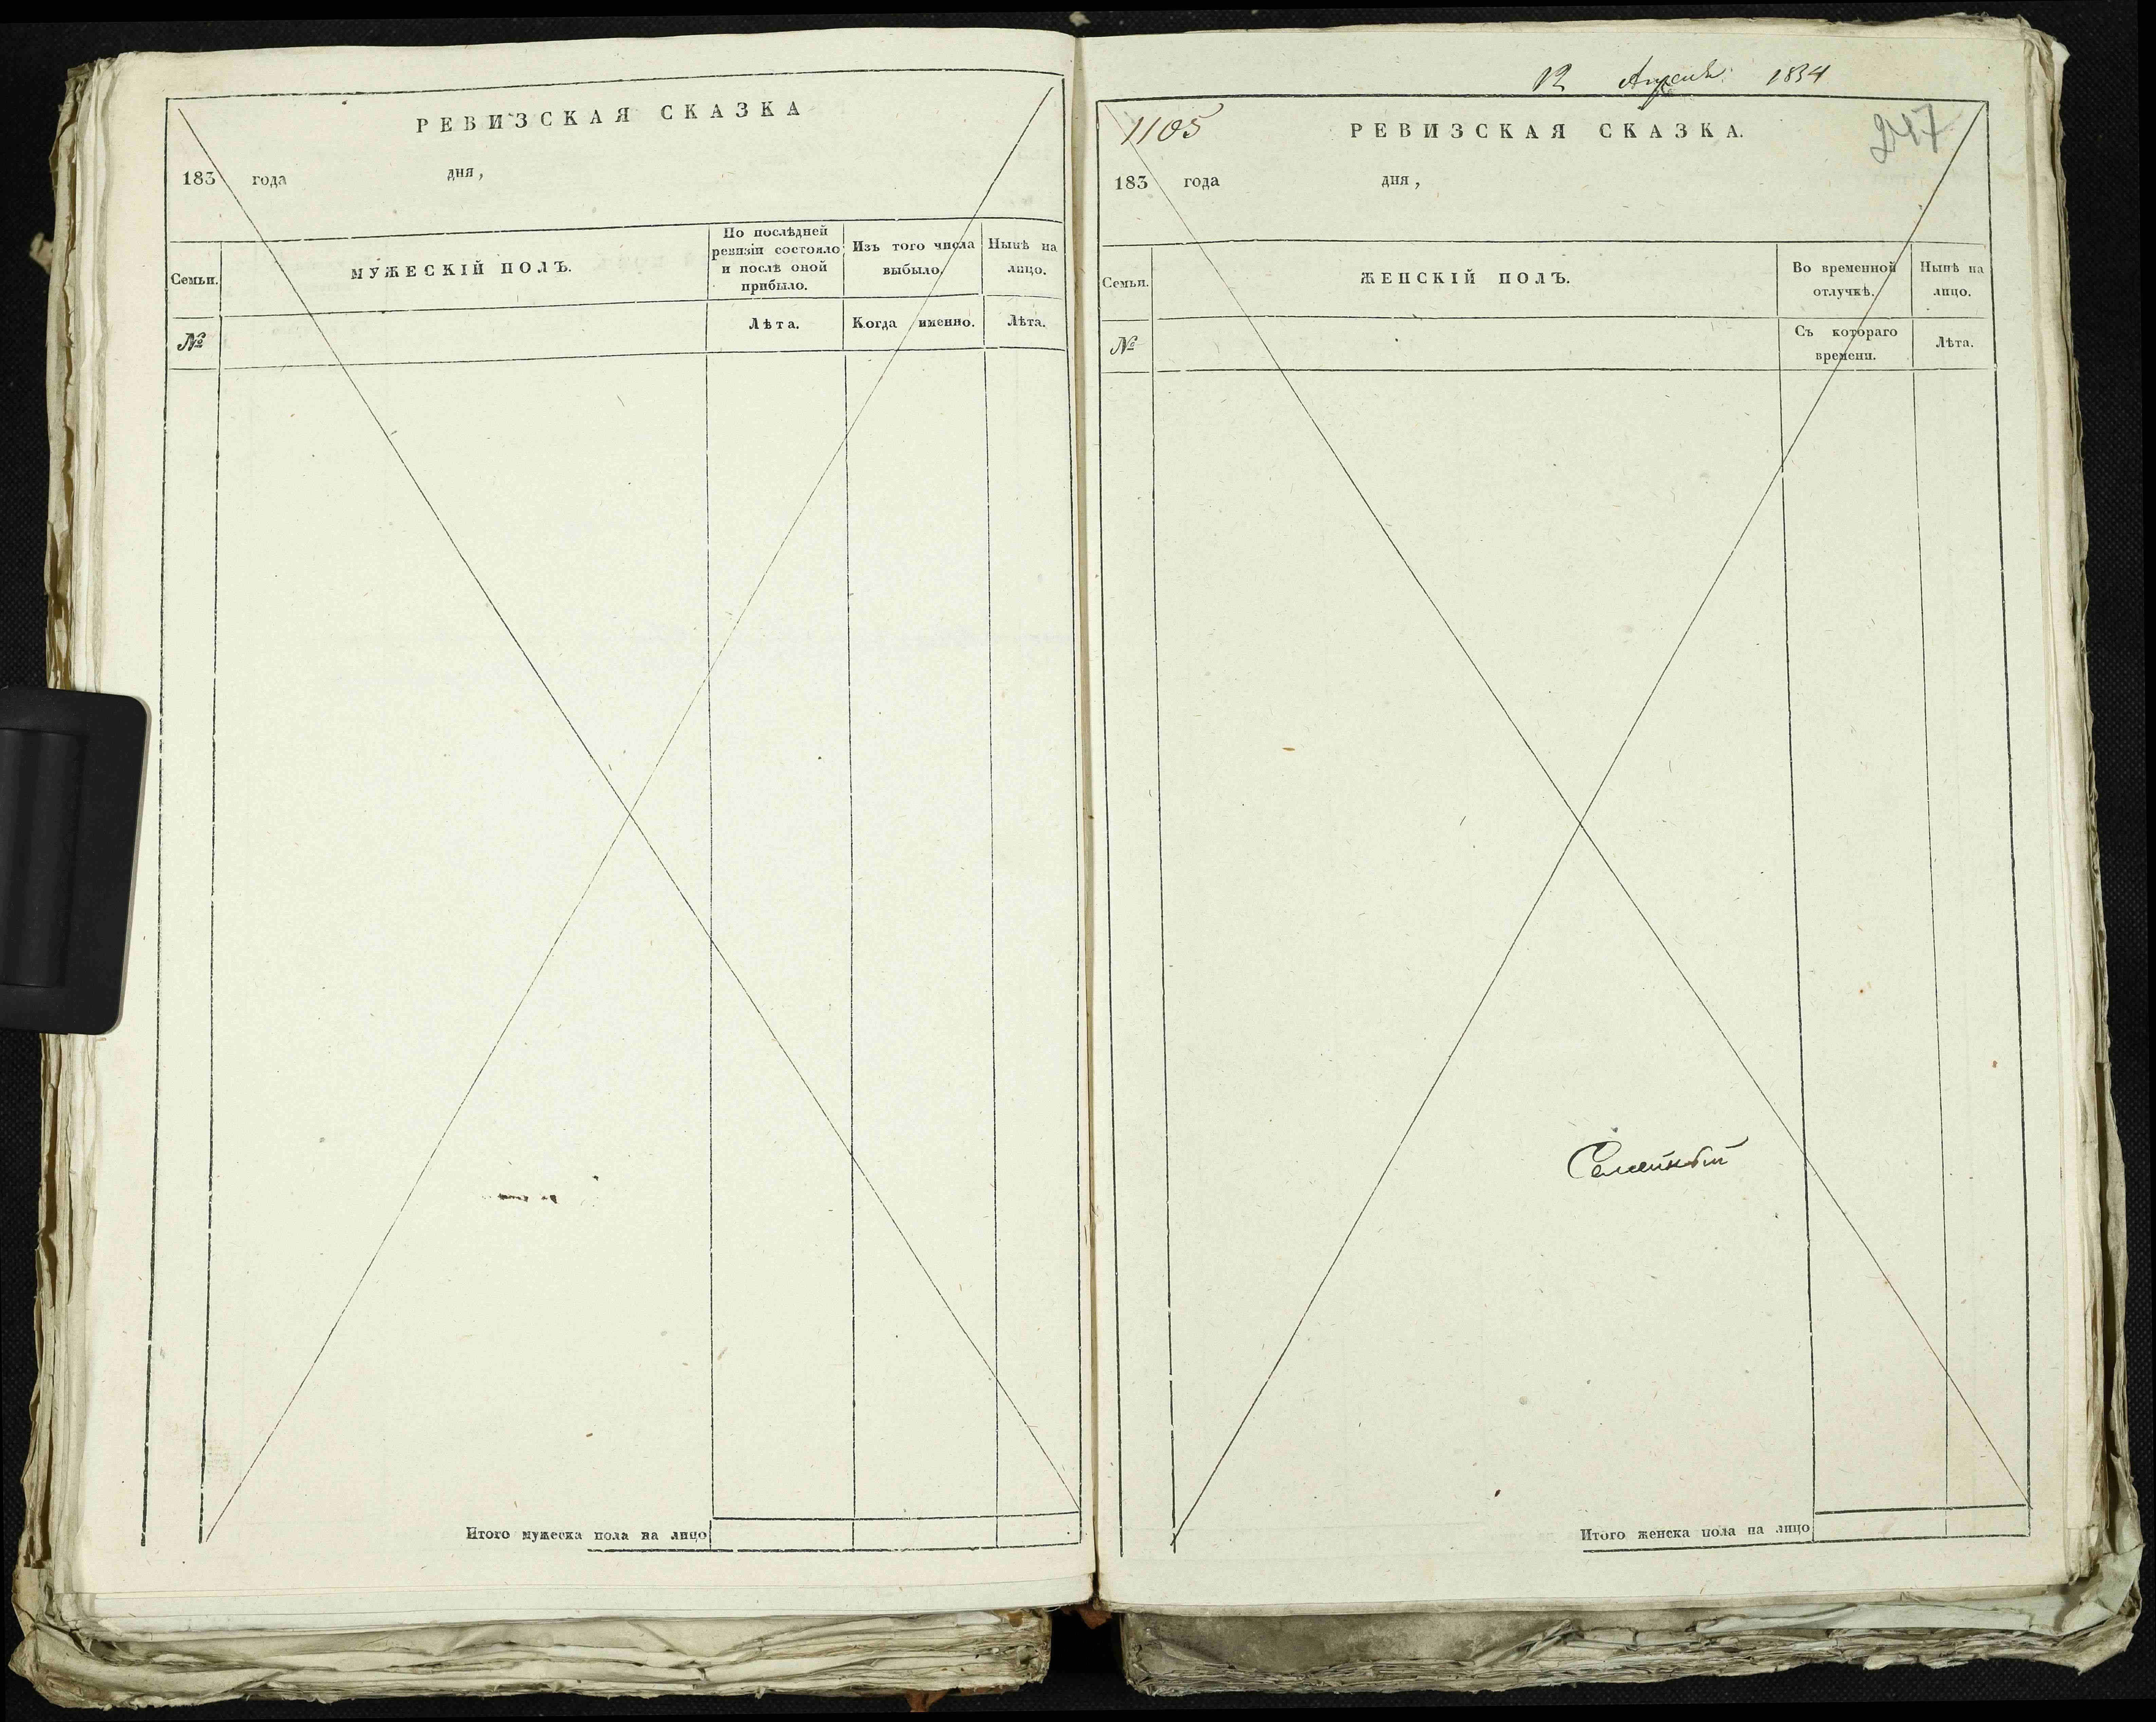 РЕВИЗСКАЯ СКАЗКА
183 года дня,
Семьи.
МУЖЕСКІЙ ПОЛЪ.
По послѣдней
ревизіи состояло
и послѣ оной
прибыло.
Изъ того числа
выбыло.
Нынѣ на
лицо.
№
Лѣта.
Когда именно.
Лѣта.
Итого мужеска пола на лицо
12 Апреля 1834
1105
РЕВИЗСКАЯ СКАЗКА.
247
183 года дня,
Семьи.
ЖЕНСКІЙ ПОЛЪ.
Во временной
отлучкѣ.
Нынѣ на
лицо.
№
Съ котораго
времени.
Лѣта.
Итого женска пола на лицо